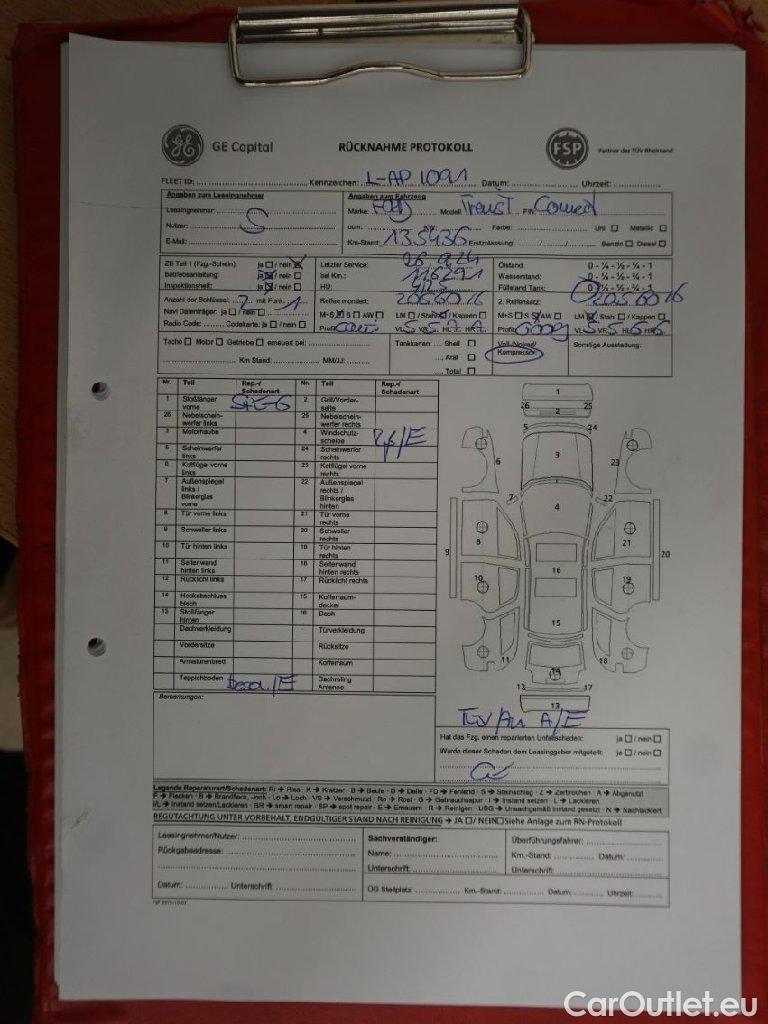 GE Capital RÜCKNAHME PROTOKOLL FSP Partner des TÜV Rheinland
FLEET ID: Kennzeichen: L-AP 1091 Datum: Uhrzeit:
Angaben zum Leasingnehmer Angaben zum Fahrzeug
Leasingnehmer: Marke: FORD Modell: FIN:
Nutzer: S ccm: KW: Farbe: Uni □ Metallic □
E-Mail: Km-Stand: 135436 Erstzulassung: Benzin □ Diesel □
ZB Teil 1 (Fzg.-Schein) ja □ / nein ☒ Letzter Service: Ölstand: 0 - ¼ - ½ - ¾ - 1
Betriebsanleitung: ja ☒ / nein □ bei Km.: 116291 Wasserstand: 0 - ¼ - ½ - ¾ - 1
Inspektionsheft: ja ☒ / nein □ HU: Füllstand Tank: 0 - ¼ - ½ - ¾ - 1
Anzahl der Schlüssel: mit Funk: 1 Reifen montiert: 2056016 2. Reifensatz: 2056016
Navi Datenträger: ja □ / nein □ M+S ☒ S □ AW □ LM □ / Stahl / Kappen □ M+S □ S AW □ LM / Stahl □ / Kappen □
Radio Code: Codekarte: ja □ / nein □ Profil VL: 5 VR: 5 HL: 7 HR: 7 Profil VL: 5 VR: 5 HL: 6 HR: 6
Tacho □ Motor □ Getriebe □ erneuert bei: Tankkarten: Shell □ Voll-/Notrad/ Sonstige Ausstattung:
Km Stand: MM/JJ: Aral □ Kompressor
Total □
Nr. Teil Rep.-/ Schadenart Nr. Teil Rep.-/ Schadenart
1 Stoßfänger vorne 2 Grill/Vorderseite
26 Nebelscheinwerfer links 25 Nebelscheinwerfer rechts
3 Motorhaube 4 Windschutzscheibe
5 Scheinwerfer links 24 Scheinwerfer rechts
6 Kotflügel vorne links 23 Kotflügel vorne rechts
7 Außenspiegel links / Blinkerglas vorne 22 Außenspiegel rechts / Blinkerglas hinten
8 Tür vorne links 21 Tür vorne rechts
9 Schweller links 20 Schweller rechts
10 Tür hinten links 19 Tür hinten rechts
11 Seitenwand hinten links 18 Seitenwand hinten rechts
12 Rücklicht links 17 Rücklicht rechts
14 Heckabschlussblech 15 Kofferraumdeckel
13 Stoßfänger hinten 16 Dach
Dachverkleidung Türverkleidung
Vordersitze Rücksitze
Armaturenbrett Kofferraum
Teppichboden Dachreling Antenne
26 2 25
5 24
6 3 23
7 22
4
8 21
9 20
16
10 19
15
11 18
14
12 17
13
Bemerkungen:
A/E
Hat das Fzg. einen reparierten Unfallschaden: ja □ / nein □
Wurde dieser Schaden dem Leasinggeber mitgeteilt: ja □ / nein □
Legende Reparaturart/Schadenart: Ri → Riss · K → Kratzer · B → Beule · D → Delle · FD → Fehlend · S → Steinschlag · Z → Zerbrochen · A → Abgenutzt
F → Flecken · B → Brandfleck, -loch · Lo → Loch · VS → Verschmutzt · Ro → Rost · G → Gebrauchsspur · I → Instand setzen · L → Lackieren
I/L → Instand setzen/Lackieren · SR → smart repair · SP → spot repair · E → Erneuern · R → Reinigen · USG → Unsachgemäß instand gesetzt · N → Nachlackiert
BEGUTACHTUNG UNTER VORBEHALT, ENDGÜLTIGER STAND NACH REINIGUNG → JA □ / NEIN □ Siehe Anlage zum RN-Protokoll
Leasingnehmer/Nutzer: Sachverständiger: Überführungsfahrer:
Rückgabeadresse: Name: Km.-Stand: Datum:
Unterschrift: Unterschrift:
Datum: Unterschrift: ÖG Stellplatz: Km.-Stand: Datum: Uhrzeit:
CarOutlet.eu